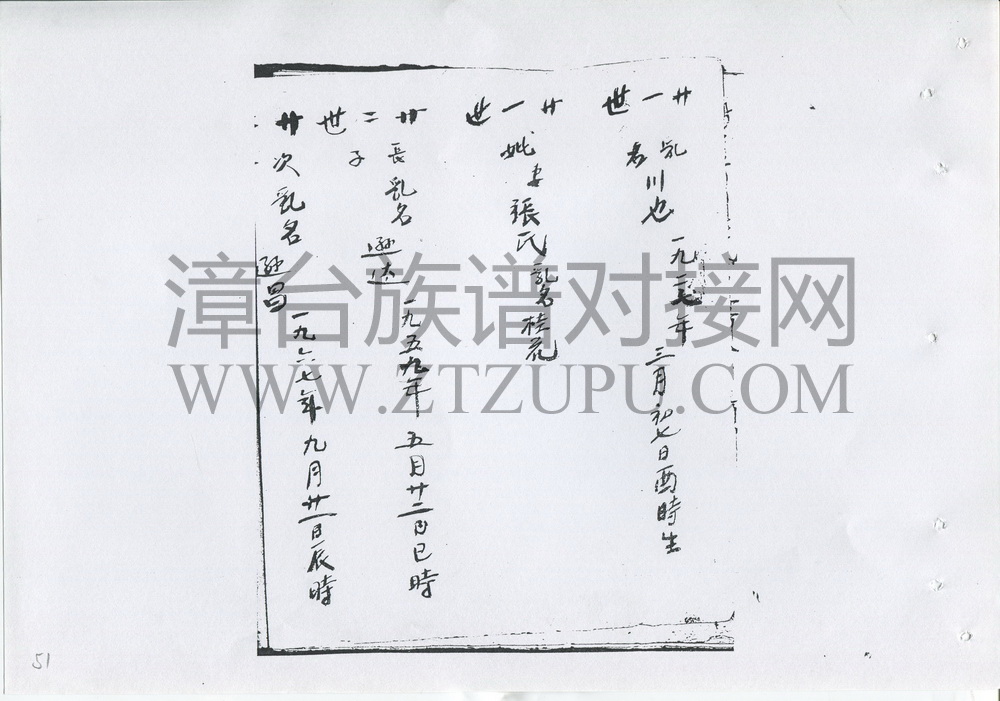 廿一世
乳名川也 一九二七年三月初七日酉時生
廿一世
妣妻張氏乳名桂花
廿二世
長子乳名遜达 一九五九年五月廿二日巳時
廿
次乳名遜昌 一九六七年九月廿一日辰時
漳台族谱对接网
WWW.ZTZUPU.COM
51